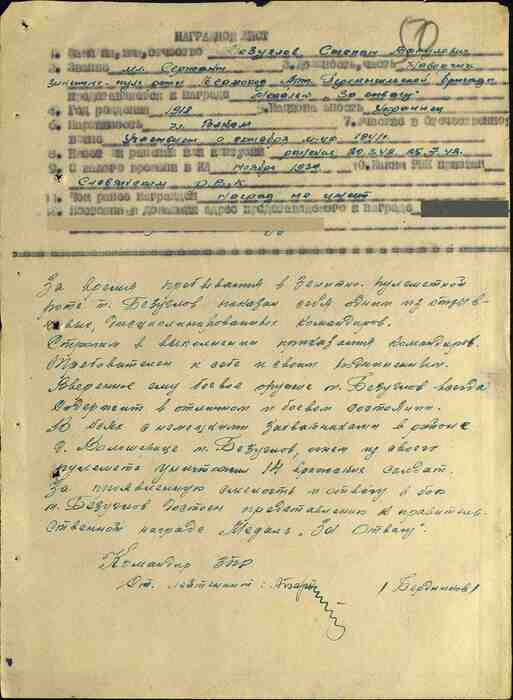 7
НАГРАДНОЙ ЛИСТ
1. Фамилия, имя, отчество Безуглов, Степан
2. Звание мл. Сержант 3. Должность, часть Наводчик
Зенитно-пул. роты
представляется к награде Медаль "За отвагу"
4. Год рождения 1918 5. Национальность Украинец
6. Партийность чл. 7. Участие в Отечественной
войне Участвует с октября м-ца 1941 г.
8. Имеет ли ранения или контузии
9. С какого времени в КА ноября 10. Каким РВК призван
Славянским Р.В.К.
11. Чем ранее награжден наград не имеет
12. Постоянный домашний адрес представляемого к награде
За время пребывания в Зенитно. пулеметной
роте т. Безуглов показал себя одним из
дисциплинированных командиров.
в выполнении приказания командиров.
Требователен к себе и своим подчиненным.
Вверенное ему боевое оружие т. Безуглов всегда
содержит в отличном и боевом состоянии.
В боях с немецкими захватчиками в районе
т. Безуглов, огнем из своего
пулемета уничтожил 14 вражеских солдат.
За проявленную смелость и отвагу в бою
т. Безуглов достоин представлению к правитель-
ственной награде Медаль "За Отвагу".
Командир ЗПР
Ст. лейтенант: